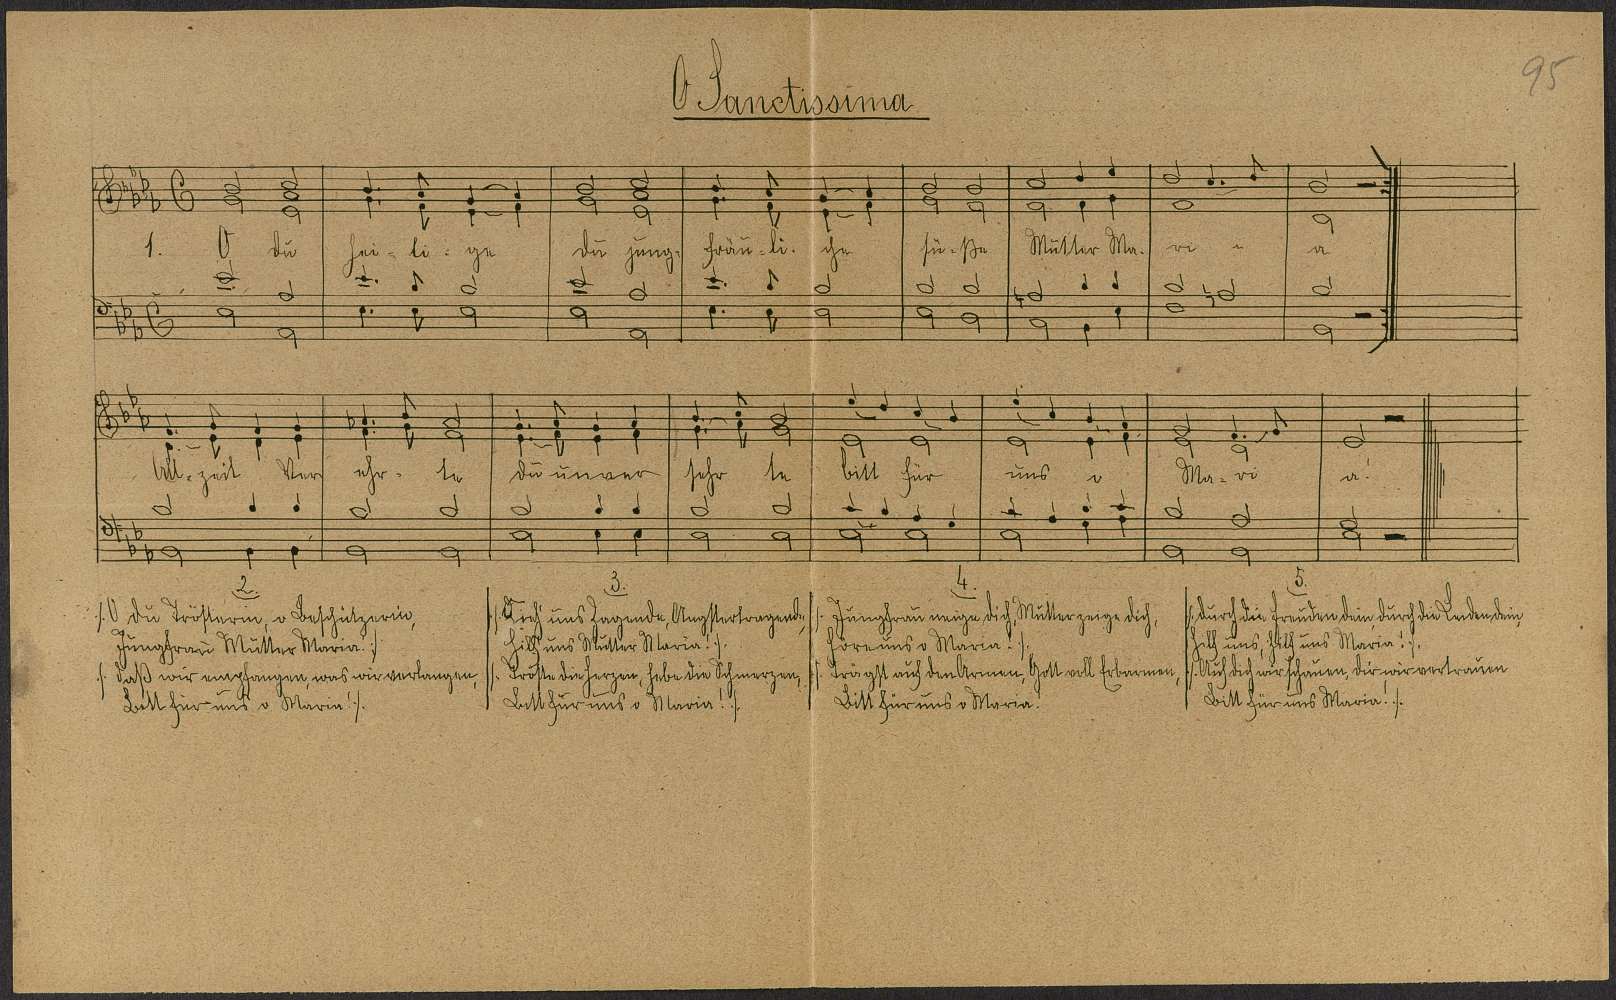 O Sanctissima
95
1. O du hei - li - ge du jung - fräu - li - che sü - ße Mutter Ma - ri - a
All - zeit Ver ehr - te du unver sehr te bitt für uns o Ma - ri a!
2.
:/: O du Trösterin, o Beschützerin,
Jungfrau Mutter Maria. :/:
:/: Daß wir empfangen, was wir verlangen,
Bitt für uns o Maria! :/:
3.
:/: uns Zagende, Angstertragende,
Hilf uns Mutter Maria! :/:
:/: Tröste die Herzen, hebe die Schmerzen,
Bitt für uns o Maria! :/:
4.
:/: Jungfrau neige dich, Mutter zeige dich,
Höre uns o Maria! :/:
:/: Trägst auf den Armen, Gott voll Erbarmen,
Bitt für uns o Maria.
5.
:/: Durch die Freuden dein durch die Leiden dein,
Hilf uns, hilf uns Maria! :/:
:/: Auf dich wir schauen, dir wir vertrauen
Bitt für uns Maria! :/: